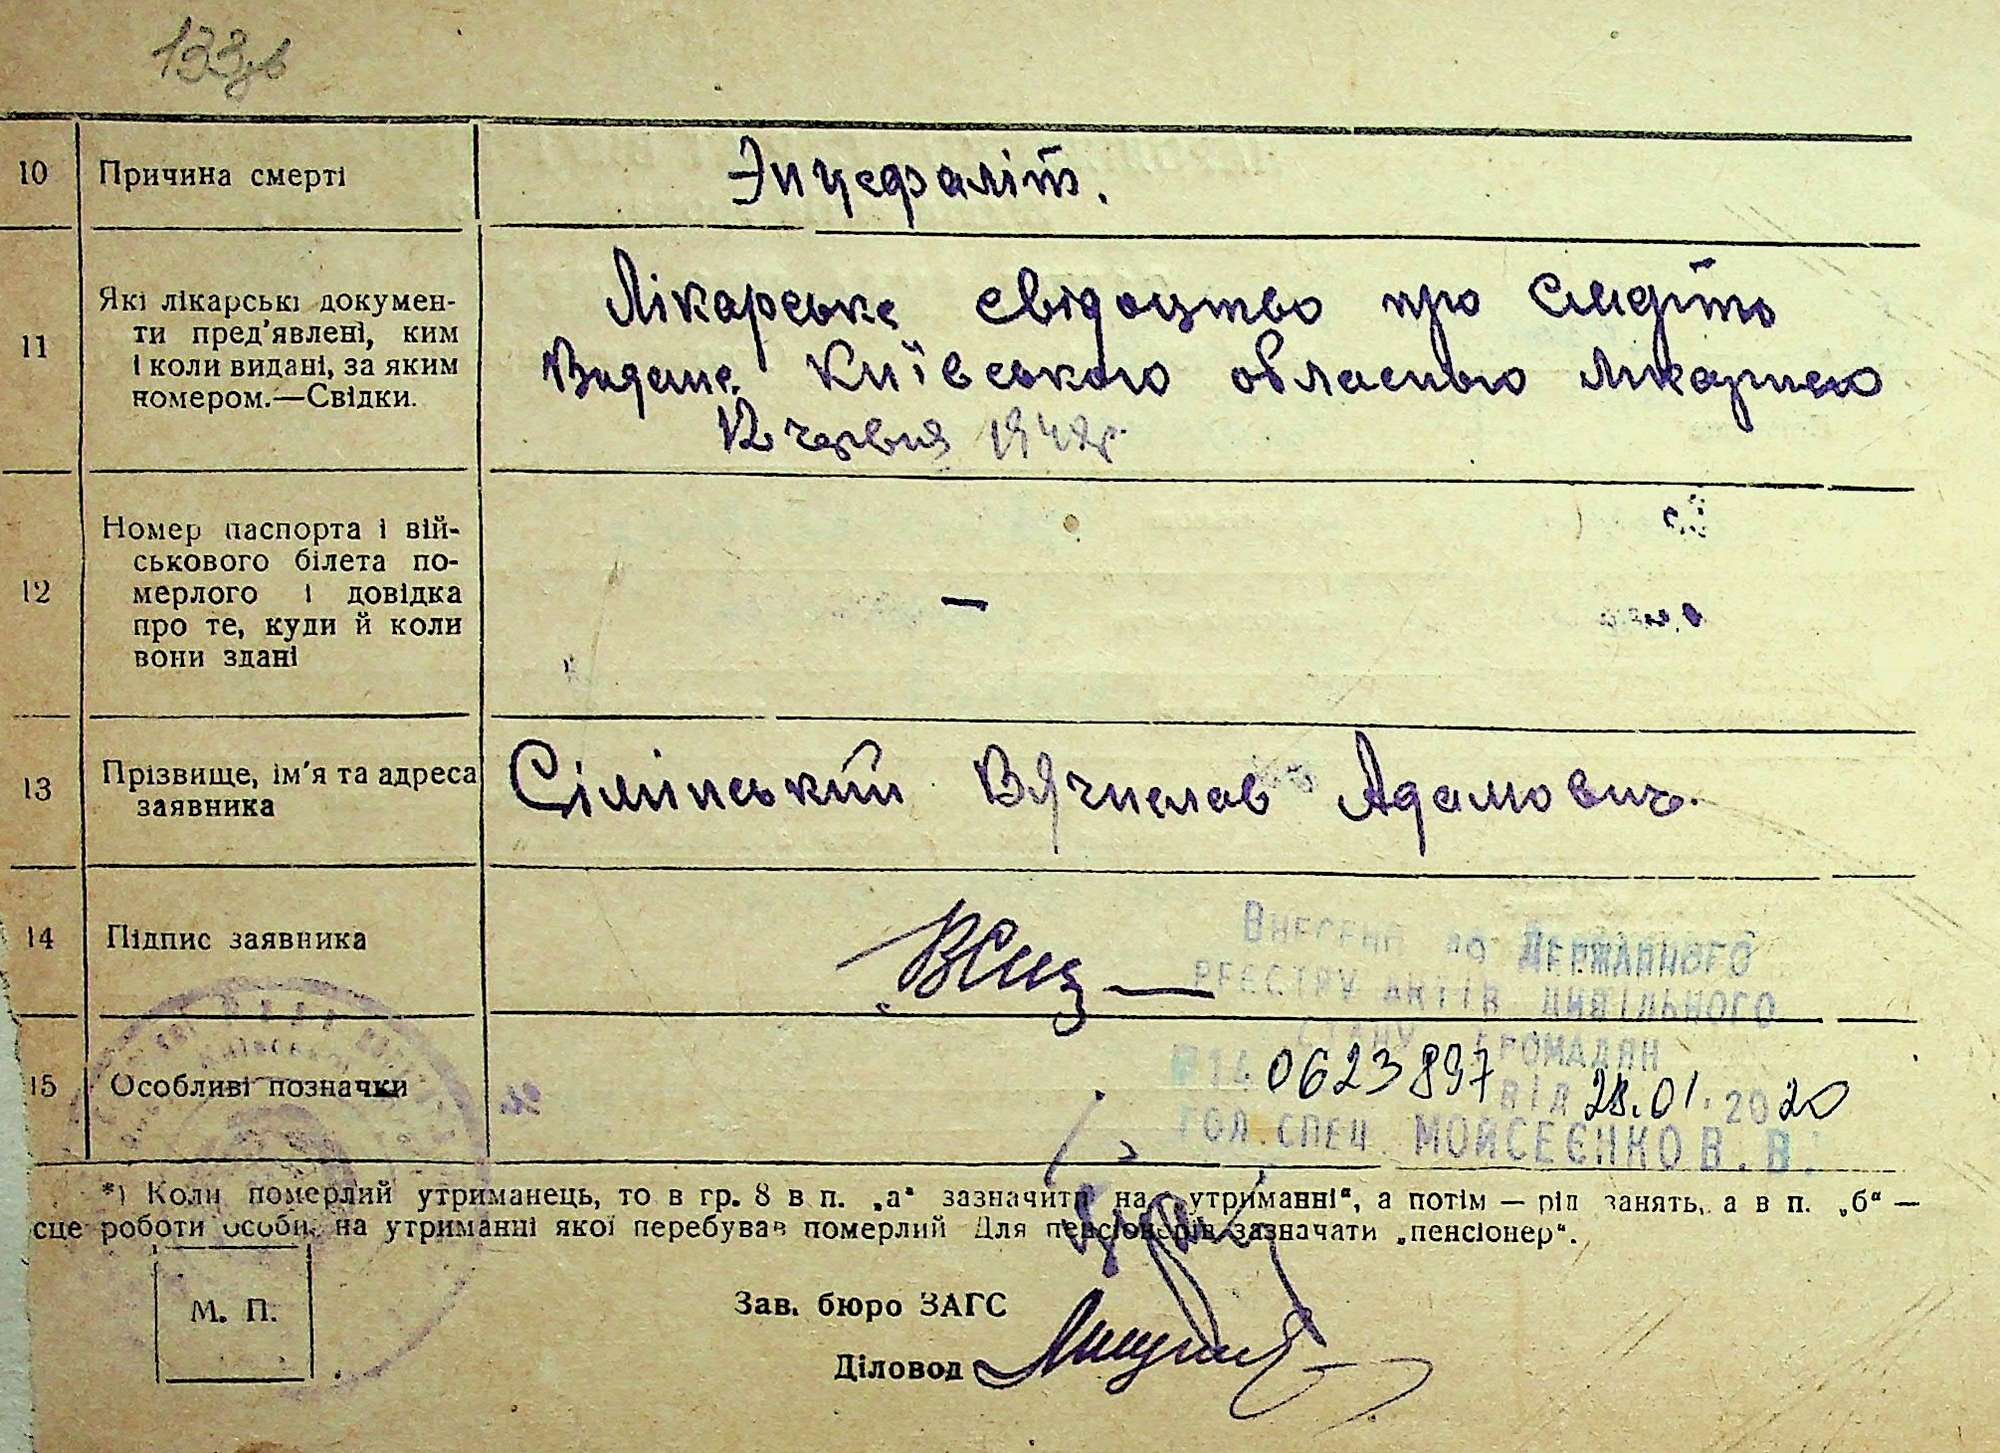 133зв
10 Причина смерті Энцефаліт.
11 Які лікарські докумен-
ти пред'явлені, ким
і коли видані, за яким
номером.—Свідки.
Лікарське свідоцтво про смерть
Видане Київською обласною лікарнею
12 червня 194
12 Номер паспорта і вій-
ськового білета по-
мерлого і довідка
про те, куди й коли
вони здані
—
13 Прізвище, ім'я та адреса
заявника
Сілінський Вячислав Адамович.
14 Підпис заявника
Внесено до Державного
реєстру актів цивільного
стану громадян
15 Особливі позначки
№14 0623897 від 28.01.2020
гол. спец. Мойсеєнко В. В.
*) Коли померлий утриманець, то в гр. 8 в п. „а“ зазначити на „утриманні“, а потім — рід занять, а в п. „б“ —
сце роботи особи, на утриманні якої перебував померлий Для пенсіонерів зазначати „пенсіонер“.
М. П.
Зав. бюро ЗАГС
Діловод